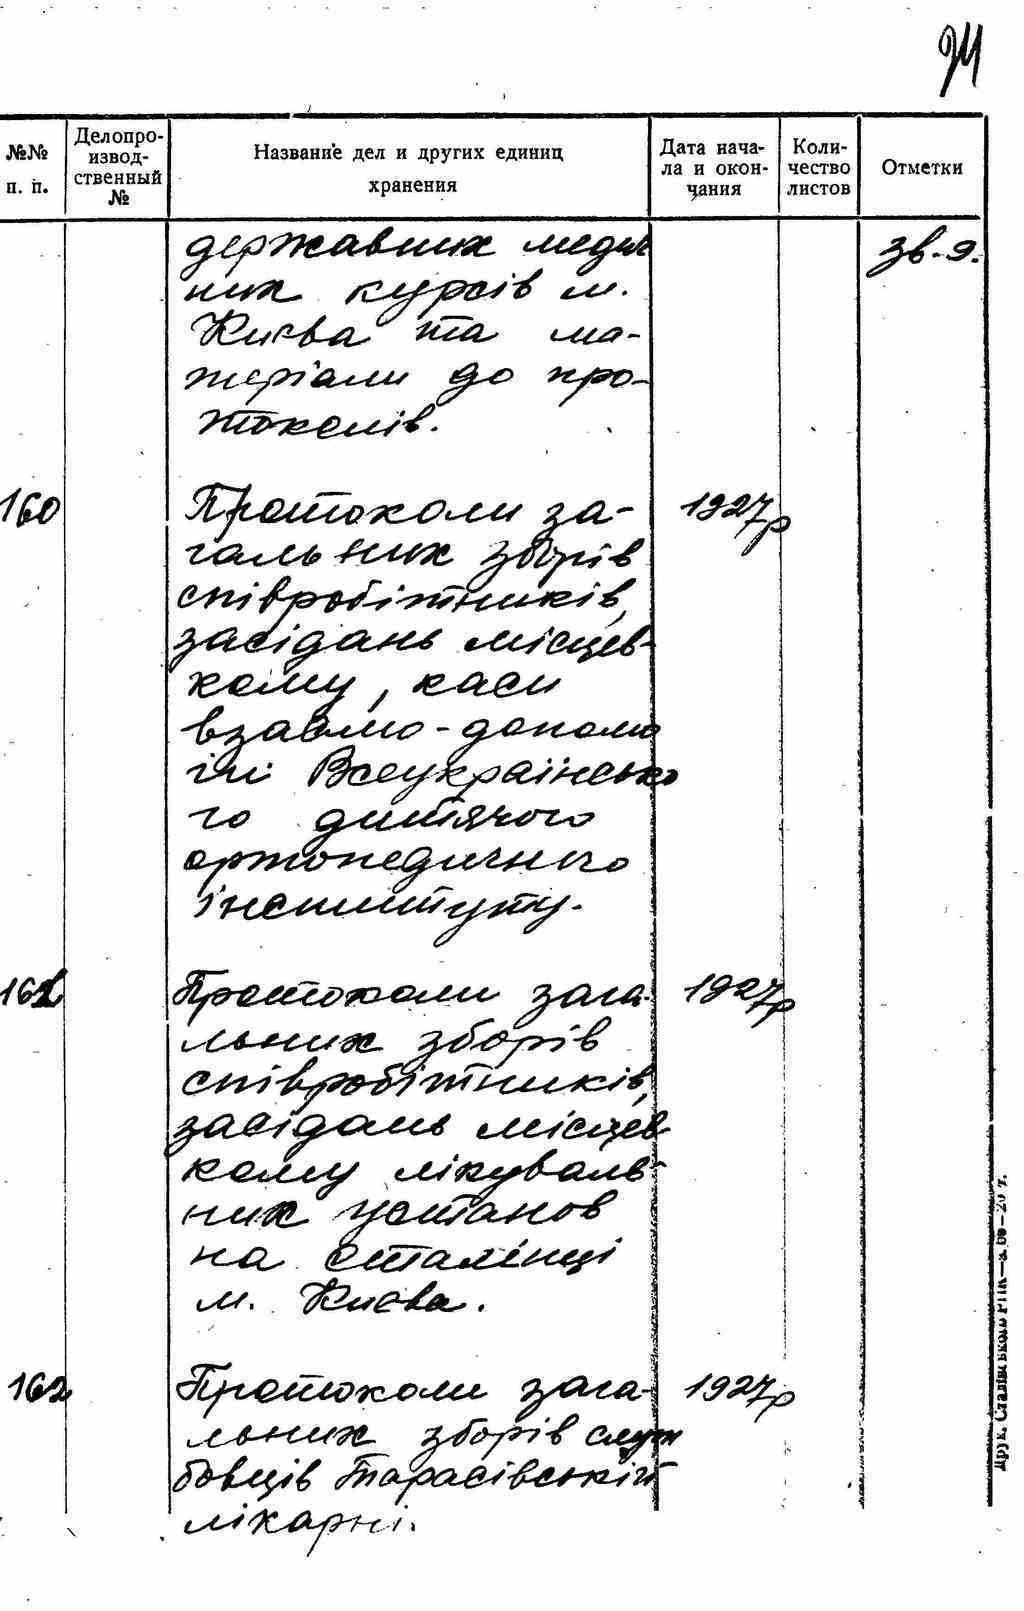 24
№№ п. п.
Делопро-
извод-
ственный
№
Название дел и других единиц
хранения
Дата нача-
ла и окон-
чания
Коли-
чество
листов
Отметки
державних медич
них курсів м.
Києва та ма-
теріали до про-
токолів.
зв. 9.
160
Протоколи за-
гальних зборів
співробітників,
засідань місцев-
кому, каси
взаємо-допомо
ги Всеукраїнсько
го дитячого
ортопедичного
інституту.
1927р
161
Протоколи зага-
льних зборів
співробітників,
засідань місцев
кому лікуваль-
них установ
на Сталінці
м. Києва.
1927р
162
Протоколи зага-
льних зборів служ
бовців Тарасівській
лікарні.
1927р